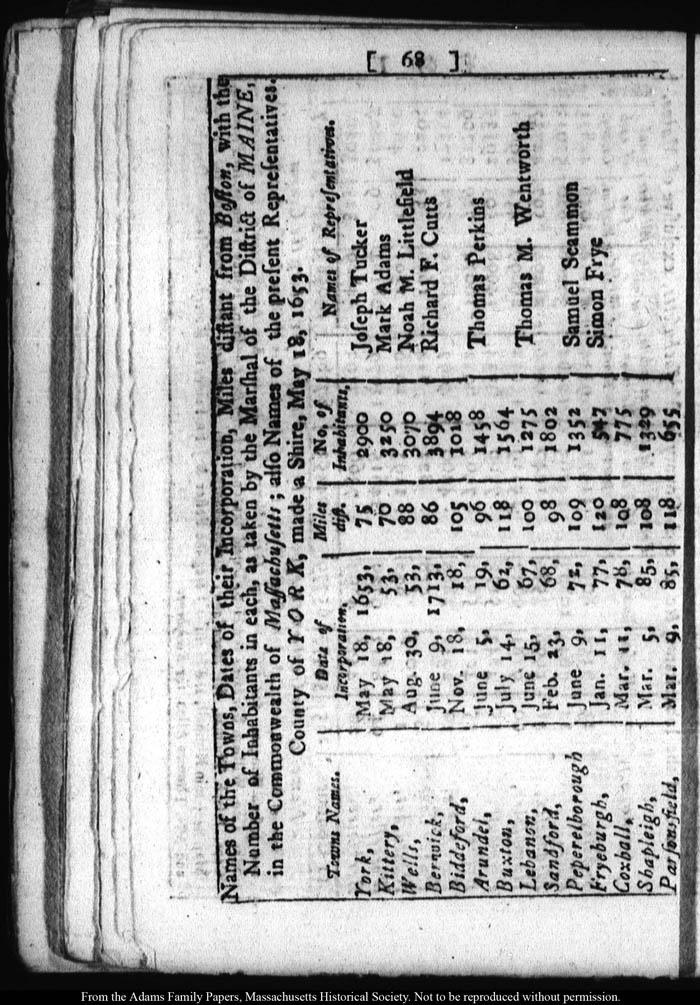 [ 68 ]
Names of the Towns, Dates of their Incorporation, Miles diſtant from Boſton, with the
Number of Inhabitants in each, as taken by the Marſhal of the Diſtrict of MAINE,
in the Commonwealth of Maſſachuſetts; alſo Names of the preſent Repreſentatives.
County of YORK, made a Shire, May 18, 1653.
Towns Names. Date of Incorporation. Miles diſt. No. of Inhabitants. Names of Repreſentatives.
York, May 18, 1653, 75 2900 Joſeph Tucker
Kittery, May 18, 53, 70 3250 Mark Adams
Wells, Aug. 30, 53, 88 3070 Noah M. Littlefield
Berwick, June 9, 1713, 86 3894 Richard F. Cutts
Biddeford, Nov. 18, 18, 105 1018
Arundel, June 5, 19, 96 1458 Thomas Perkins
Buxton, July 14, 62, 118 1564
Lebanon, June 15, 67, 100 1275 Thomas M. Wentworth
Sandford, Feb. 23, 68, 98 1802
Peperelborough June 9, 72, 109 1352 Samuel Scammon
Fryeburgh, Jan. 11, 77, 120 547 Simon Frye
Coxhall, Mar. 11, 78, 108 775
Shapleigh, Mar. 5, 85, 108 1329
Parſonsfield, Mar. 9, 85, 118 655
From the Adams Family Papers, Massachusetts Historical Society. Not to be reproduced without permission.